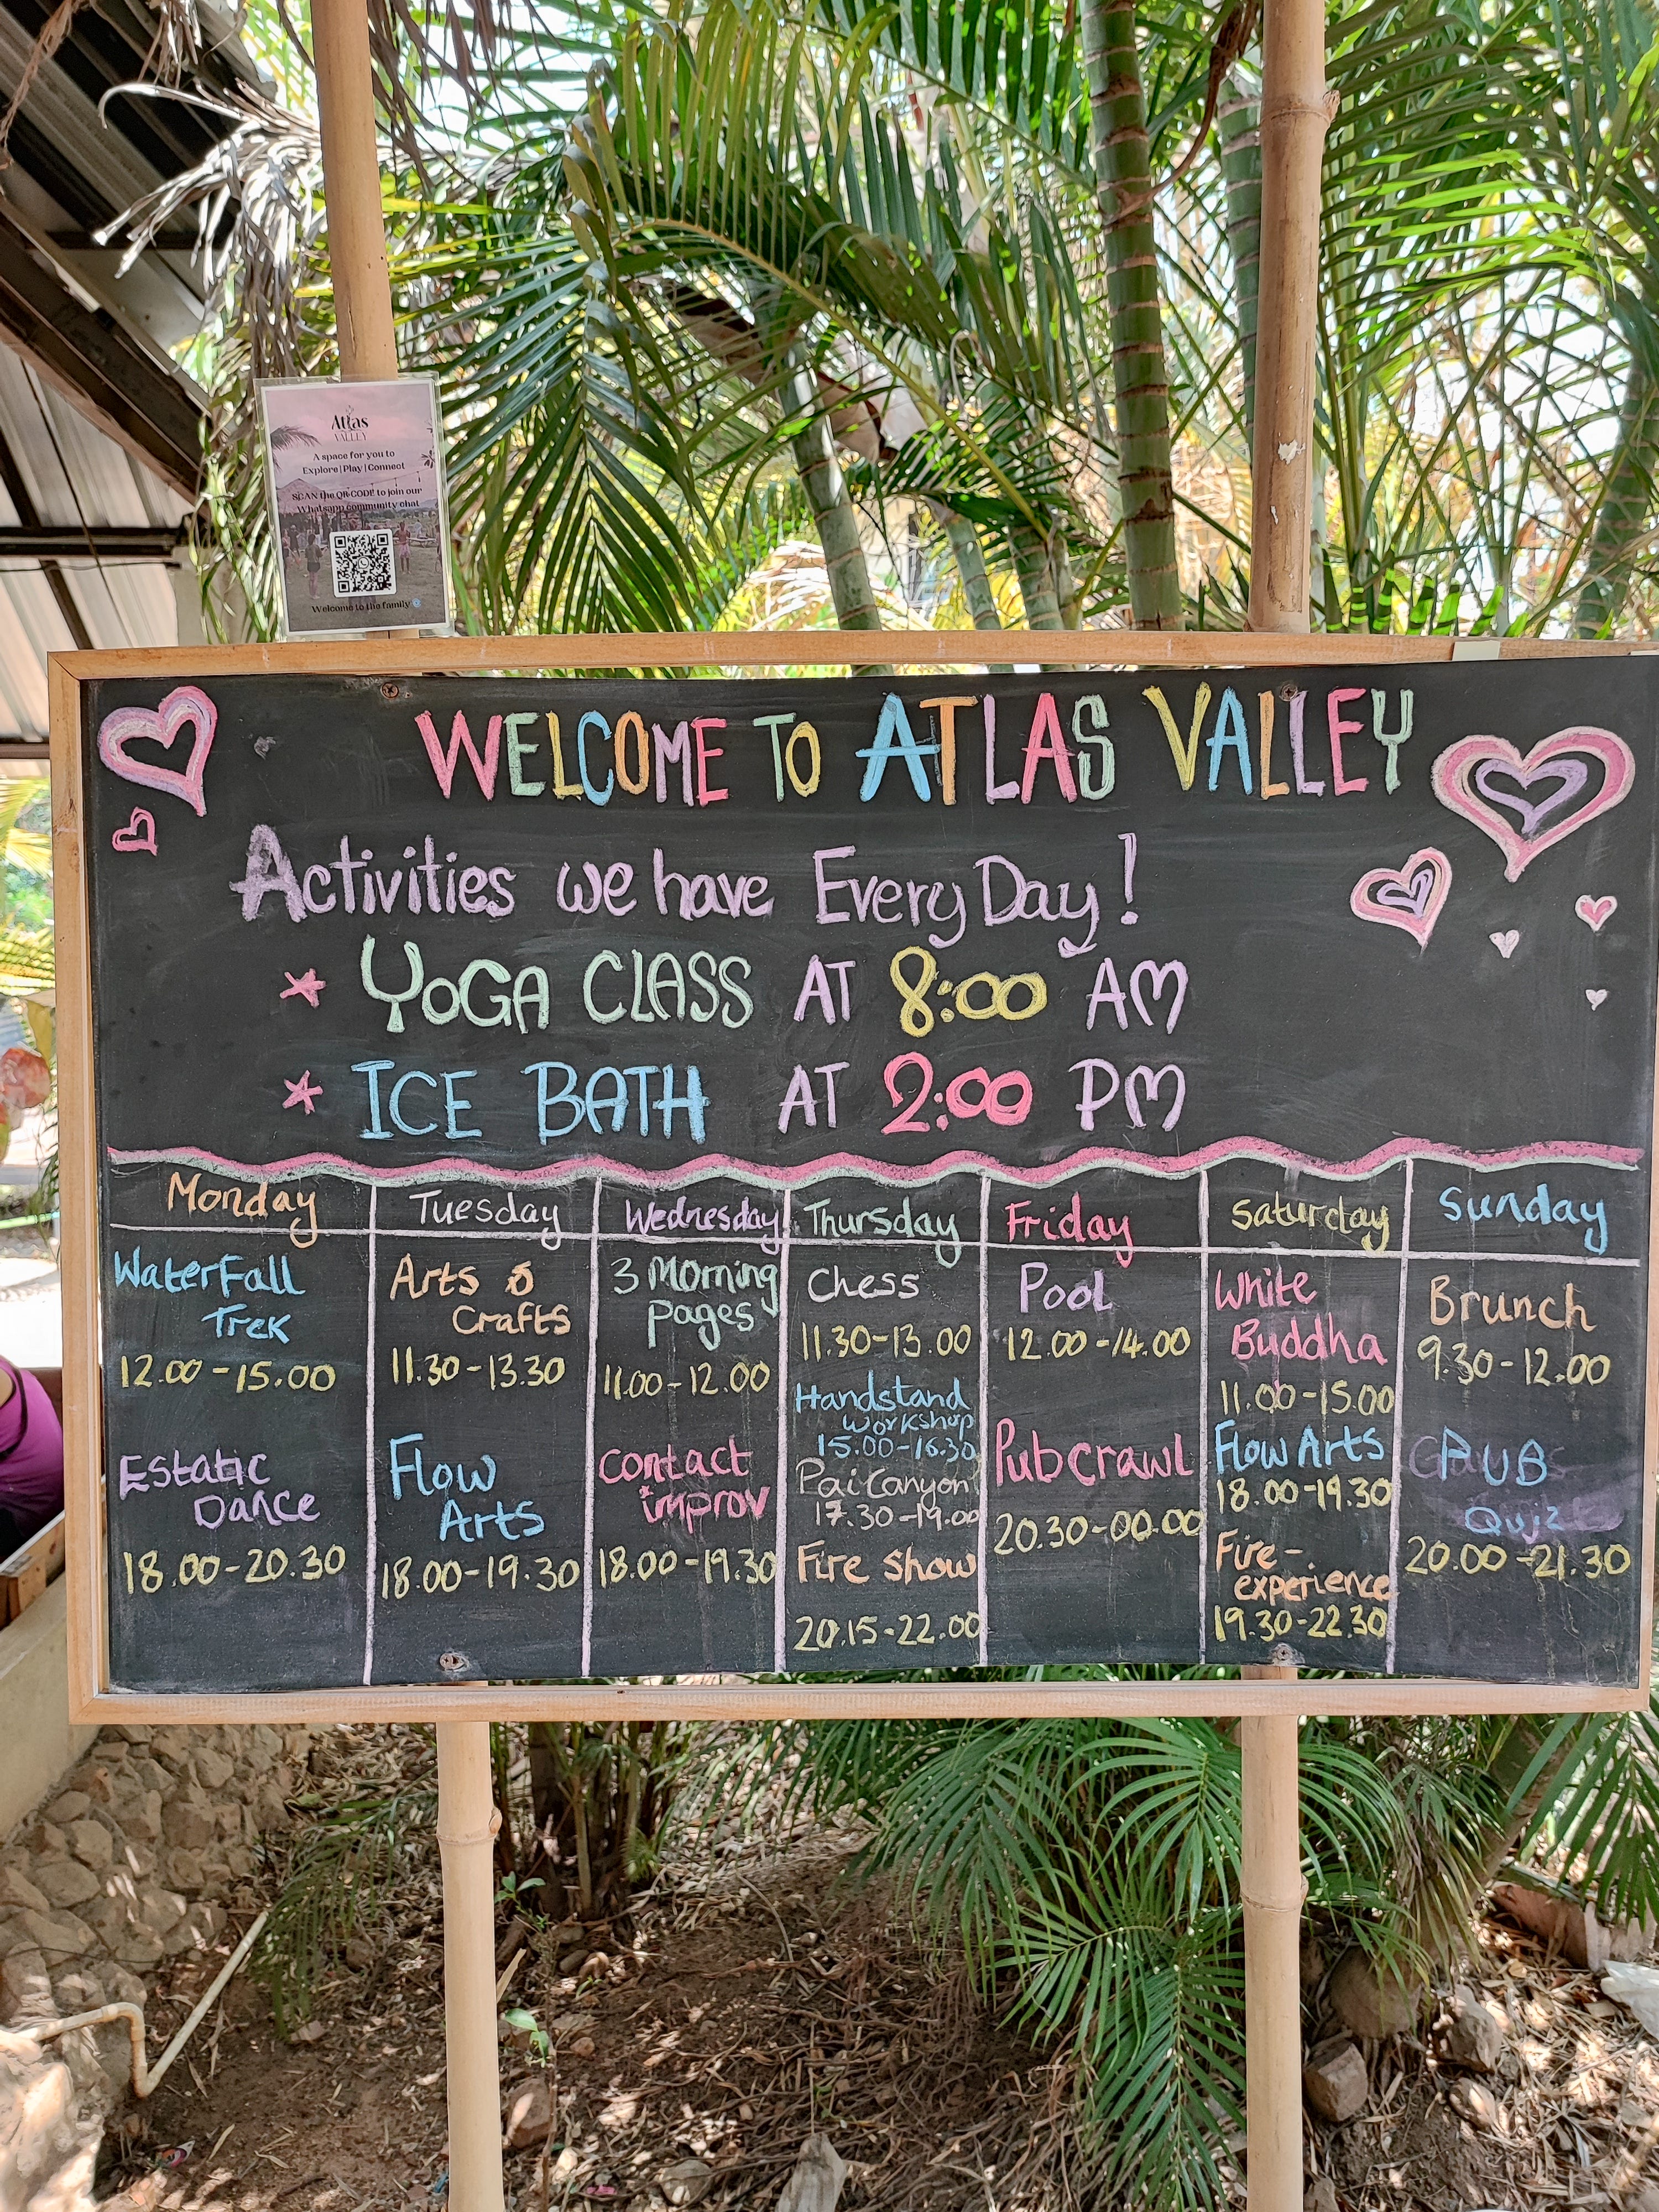 Atlas
VALLEY
A space for you to
Explore | Play | Connect
SCAN the QR-CODE to join our
Whatsapp community chat
Welcome to the family
WELCOME TO ATLAS VALLEY
Activities we have Every Day!
* YOGA CLASS AT 8:00 AM
* ICE BATH AT 2:00 PM
Monday
Waterfall
Trek
12.00-15.00
Estatic
Dance
18.00-20.30
Tuesday
Arts &
Crafts
11.30-13.30
Flow
Arts
18.00-19.30
Wednesday
3 Morning
pages
11.00-12.00
contact
improv
18.00-19.30
Thursday
Chess
11.30-13.00
Handstand
workshop
15.00-16.30
Pai Canyon
17.30-19.00
Fire show
20.15-22.00
Friday
Pool
12.00-14.00
Pubcrawl
20.30-00.00
Saturday
White
Buddha
11.00-15.00
Flow Arts
18.00-19.30
Fire-
experience
19.30-22.30
Sunday
Brunch
9.30-12.00
PUB
Quiz
20.00-21.30